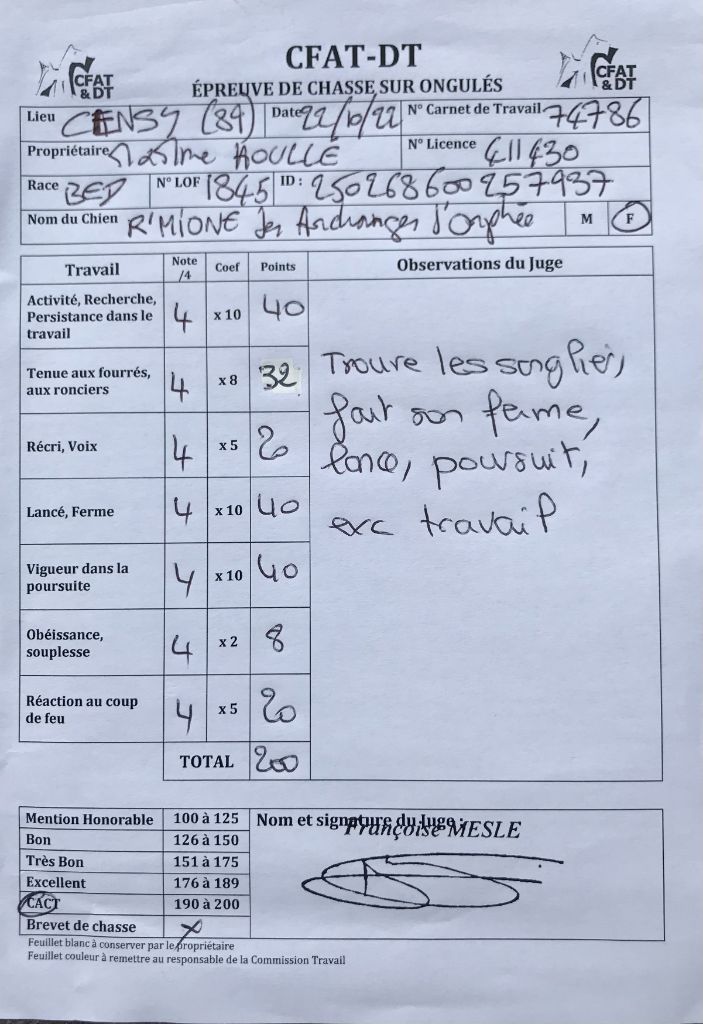 CFAT & DT
CFAT-DT
CFAT & DT
ÉPREUVE DE CHASSE SUR ONGULÉS
Lieu CENSY (89) Date 22/10/22 N° Carnet de Travail 74786
Propriétaire Maxime HOULLE N° Licence 411430
Race BED N° LOF 1845 ID : 250268600257937
Nom du Chien R'MIONE des Archanges d'Orphée M F
Travail Note /4 Coef Points Observations du Juge
Activité, Recherche, Persistance dans le travail 4 x 10 40
Tenue aux fourrés, aux ronciers 4 x 8 32
Récri, Voix 4 x 5 20
Lancé, Ferme 4 x 10 40
Vigueur dans la poursuite 4 x 10 40
Obéissance, souplesse 4 x 2 8
Réaction au coup de feu 4 x 5 20
TOTAL 200
Trouve les sanglier,
fait son ferme,
lance, poursuit,
exc travail
Mention Honorable 100 à 125
Bon 126 à 150
Très Bon 151 à 175
Excellent 176 à 189
CACT 190 à 200
Brevet de chasse x
Nom et signature du Juge :
Françoise MESLE
Feuillet blanc à conserver par le propriétaire
Feuillet couleur à remettre au responsable de la Commission Travail